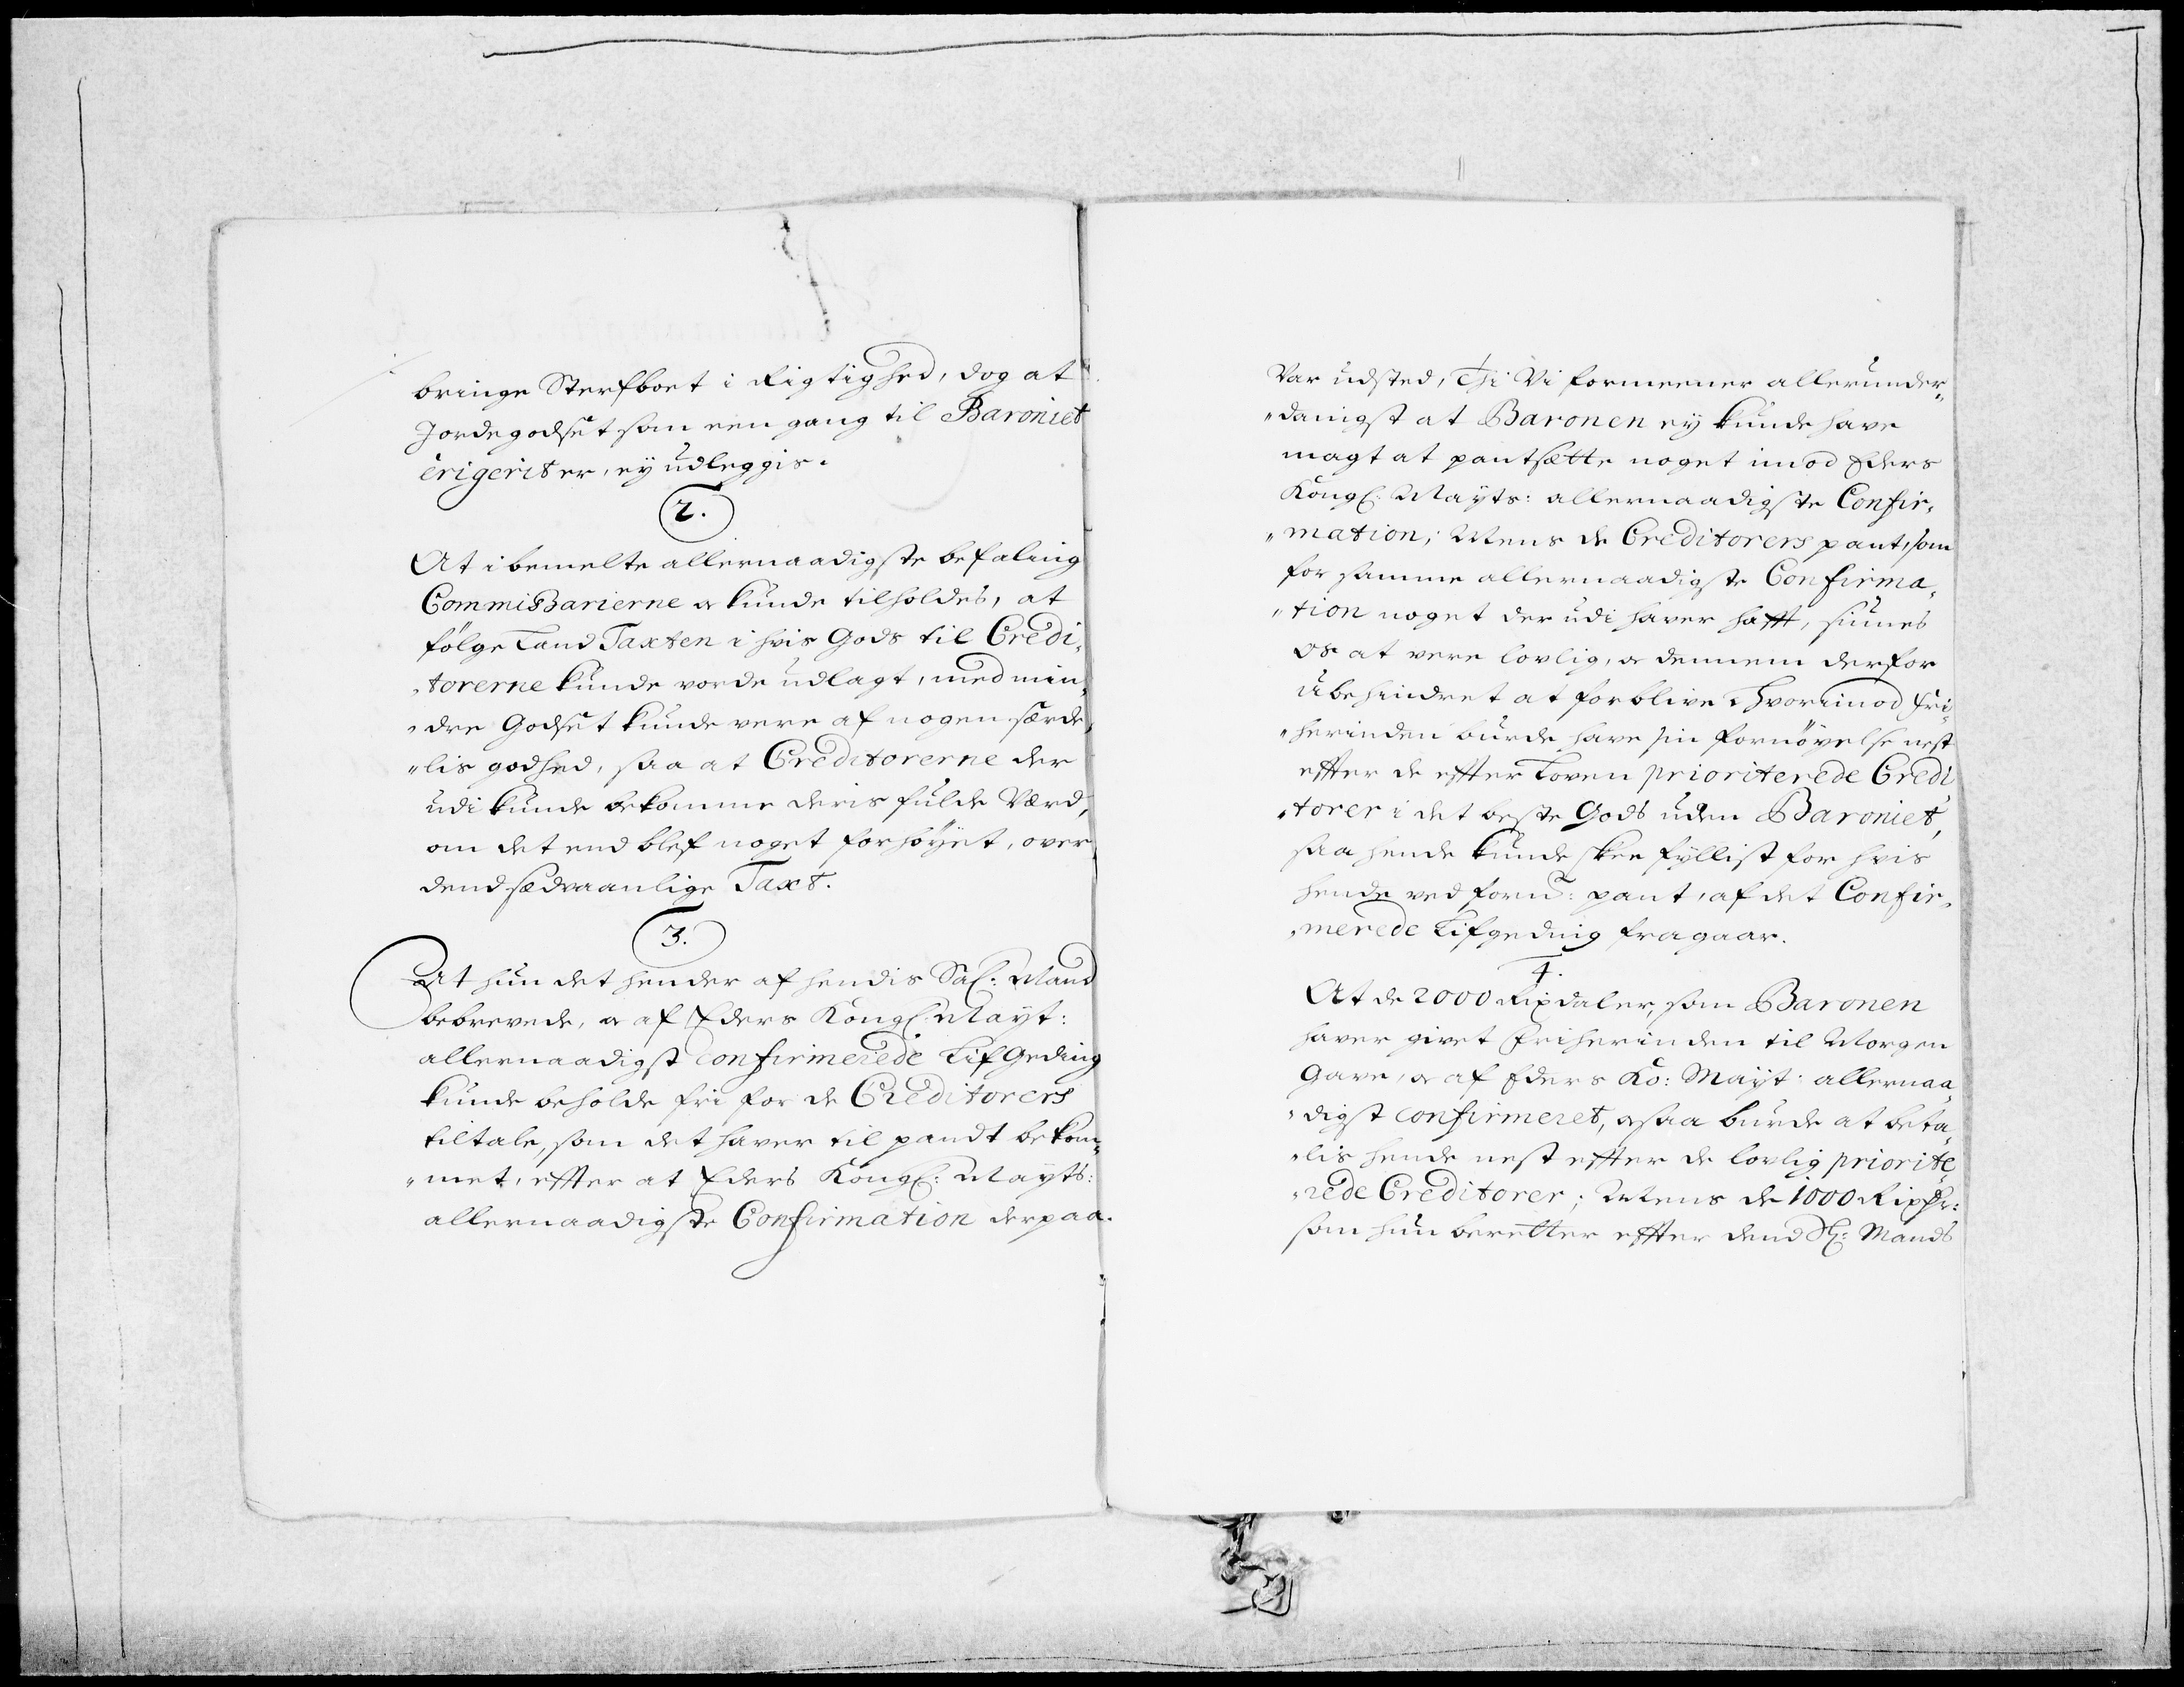 bringe Sterfboet i Rigtighed, dog at
Jordegodset som een gang til Baroniet
erigerit er, ey udleggis.
2.
At i bemelte allernaadigste befaling
Commissarierne og kunde tilholdes, at
følge Land Taxten i hvis Gods til Credi„
„torerne kunde vorde udlagt, med min„
„dre Godset kunde vere af nogen særde„
„lis godhed, saa at Creditorerne der
udi kunde bekomme deris fulde Værd,
om det end blef noget forhöyet, over
dend sædvaanlige Taxt.
3.
At hun det hender af hendis Sal: Mand
bebrevede, og af Eders Kongl: Mayt:
allernaadigst confirmerede Lif Geding
kunde beholde fri for de Creditorers
tiltale, som det haver til pandt bekom„
„met, effter at Eders Kongl: Mayts:
allernaadigste Confirmation derpaa.
Var udsted, Thi Vi formeener allerunder„
„danigst at Baronen ey kunde have
magt at pantsætte noget imod Eders
Kongl: Mayts: allernaadigste Confir„
„mation; Mens de Creditorers pant, som
for samme allernaadigste Confirma„
„tion noget der udi haver hafft, siunes
os at vere lovlig, og dennem derfor
ubehindret at forblive. Hvorimod Fri„
„herinden burde have sin fornöyelse nest
effter de effter Loven prioriterede Credi
„torer i det beste Gods uden Baroniet,
saa hende kunde skee fyllist for hvis
hende ved fornt: pant, af det Confir„
„merede Lifgeding fragaar.
4.
At de 2000 Rixdaler, som Baronen
haver givet Friherinden til Morgen
Gave, og af Eders Ko: Mayt: allernaa„
„digst confirmeret, ogsaa burde at beta„
„lis hende nest effter de lovlig priorite
„rede Creditorer; Mens de 1000 Rixdr:
som hun beretter effter dend Sl: Mands